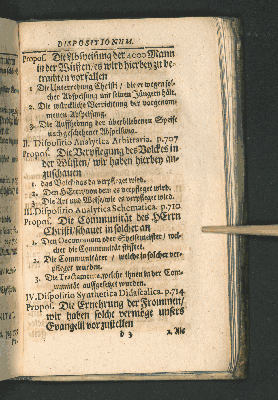 DISPOSITIONUM.
Propos. Die Abspeisung der 4000 Mann
in der Wüsten, es wird hierbey zu be-
trachten vorfallen
1. Die Unterredung Christi / die er wegen sol-
cher Abspeisung mit seinen Jüngern hält.
2. Die würckliche Verrichtung der vorgenom-
menen Abspeisung.
3. Die Auffhebung der überbliebenen Speise
nach geschehener Abspeisung.
II. Dispositio Analytica Arbitraria. p.707
Propos. Die Verpflegung des Volckes in
der Wüsten/ wir haben hierbey an-
zuschauen
1. das Volck/das da verpfleget wird.
2. Den HErrn/von dem es verpfleget wird.
3. Die Art und Weise/wie es verpfleget wird.
III. Dispositio Analytica Schematica. p.710
Propos. Die Communität des HErrn
Christi/schauet in solcher an
1. Den Oeconomum oder Speisemeister/ wel-
cher die Communität stifftet.
2. Die Communitäter / welche in solcher ver-
pfleget wurden.
3. Die Tractamente, welche ihnen in der Com-
munität auffgesetzet wurden.
IV. Dispositio Synthetica Didascalica. p.714
Propos. Die Ernehrung der Frommen/
wir haben solche vermöge unsers
Evangelii vorzustellen
d 3 1. Als